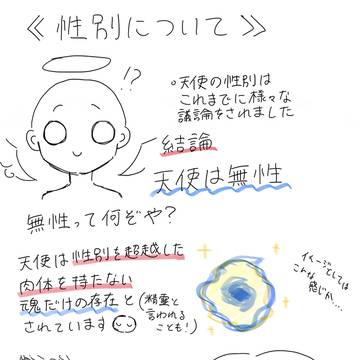 《性別について》
!?
○天使の性別は
これまでに様々な
議論をされました
結論
天使は無性
無性って何ぞや?
天使は性別を超越した
肉体を持たない
魂だけの存在と
されています
(精霊と
言われる
ことも!)
イメージとしては
こんな
感じか…